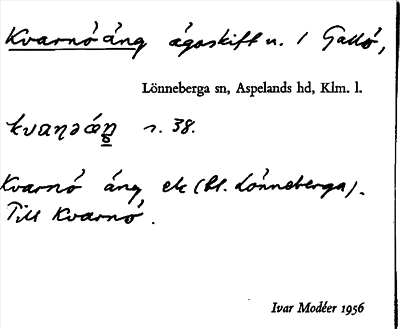 Kvarnö äng ägoskift n. i Gallö,
Lönneberga sn, Aspelands hd, Klm. l.
s. 38.
Kvarnö äng, ek (bl. Lönneberga).
Till Kvarnö.
Ivar Modéer 1956